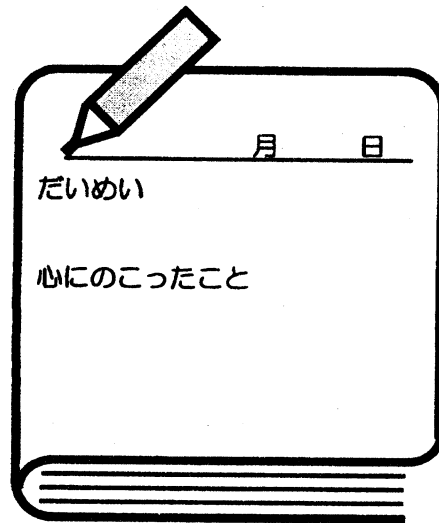 月 日
だいめい
心にのこったこと